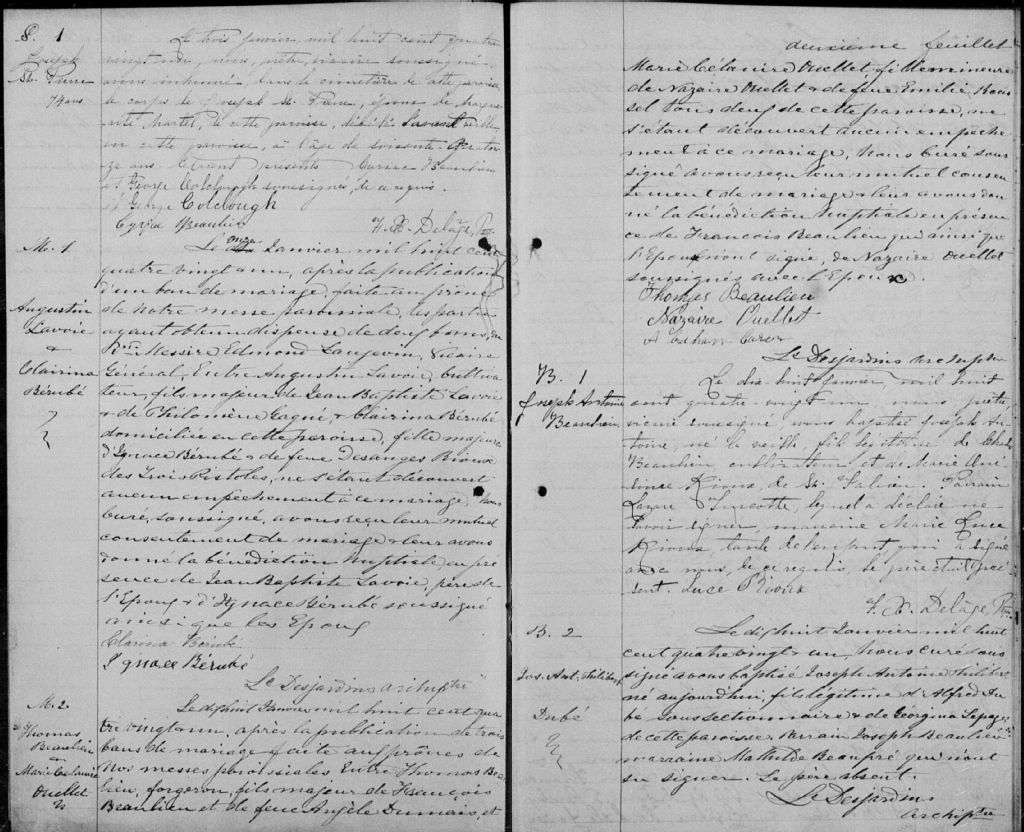 S. 1
Joseph
St. Pierre
74 ans
Le trois janvier, mil huit cent quatre
vingt un, nous, prêtre, vicaire soussigné
avons inhumé dans le cimetière de cette paroisse,
le corps de Joseph St. Pierre, époux de Margue
rite Martel, de cette paroisse, décédé
en cette paroisse, à l'âge de soixante-quator
ze ans. Etaient présents Beaulieu
et George Colclough soussignés de ce requis.
George Colclough
Beaulieu
F. X. Delâge, Ptre.
M. 1
Augustin
Lavoie
&
Clairina
Bérubé
Le onze Janvier mil huit cent
quatre vingt un, après la publication
d'un ban de mariage, faite au prône
de Notre messe paroissiale, les parties
ayant obtenu dispense de deux bans, du
Rmr Messire Edmond Langevin, Vicaire
Général, Entre Augustin Lavoie, cultiva
teur, fils majeur de Jean Baptiste Lavoie
& de Philomène Gagné, & Clairina Bérubé
domiciliée en cette paroisse, fille majeure
d'Ignace Bérubé & de feue Desanges Rioux
des Trois Pistoles, ne s'étant découvert
aucun empêchement à ce mariage, Nous
curé, soussigné, avons reçu leur mutuel
consentement de mariage & leur avons
donné la bénédiction Nuptiale en pré
sence de Jean Baptiste Lavoie, père de
l'Epoux & d'Ignace Bérubé soussigné
ainsi que les Epoux
Clarina Bérubé
Ignace Bérubé
Ls Desjardins archiptre
M. 2.
Thomas
Beaulieu
&
Marie Célanire
Ouellet
Le dix huit Janvier mil huit cent qua
tre vingt un, après la publication de trois
bans de mariage faite aux prônes de
Nos messes paroissiales Entre Thomas Beau
lieu, forgeron, fils majeur de François
Beaulieu et de feue Angèle Dumais, et
deuxième feuillet
Marie Célanire Ouellet, fille mineure
de Nazaire Ouellet & de feue Emilie Rous
sel tous deux de cette paroisse, ne
s'étant découvert aucun empêche
ment à ce mariage, Nous Curé sous
signé avons reçu leur mutuel consen
tement de mariage & leur avons don
né la bénédiction Nuptiale en présen
ce de François Beaulieu qui ainsi que
l'Epouse n'ont signé, de Nazaire Ouellet
soussignés avec l'Epoux.
Thomas Beaulieu
Nazaire Ouellet
Caron
Ls Desjardins archiptre
B. 1
Joseph Antoine
Beaulieu
Le dix-huit janvier, mil huit
cent quatre-vingt un, nous, prêtre,
vicaire soussigné, avons baptisé Joseph An
toine, né la veille, fils légitime de Charles
Beaulieu, cultivateur, et de Marie
Rioux, de St. Fabien. Parrain
Lazare Turcotte, lequel a déclaré ne
savoir signer, marraine Marie Luce
Rioux, tante de l'enfant, qui a signé
avec nous, de ce requis, le père était pré
sent. Luce Rioux
F. X. Delâge, Ptre
B. 2
Jos. Ant. Philibert
Dubé
Le dix huit Janvier mil huit
cent quatre vingt un, Nous curé sous
signé avons baptisé Joseph Antoine Philibert
né aujourdhui, fils légitime d'Alfred Du
bé sous sectionnaire & de Georgina Lepage
de cette paroisse. Parrain Joseph Beaulieu
marraine Mathilde Beaupré qui n'ont
su signer. Le père absent.
Ls Desjardins
archiptre